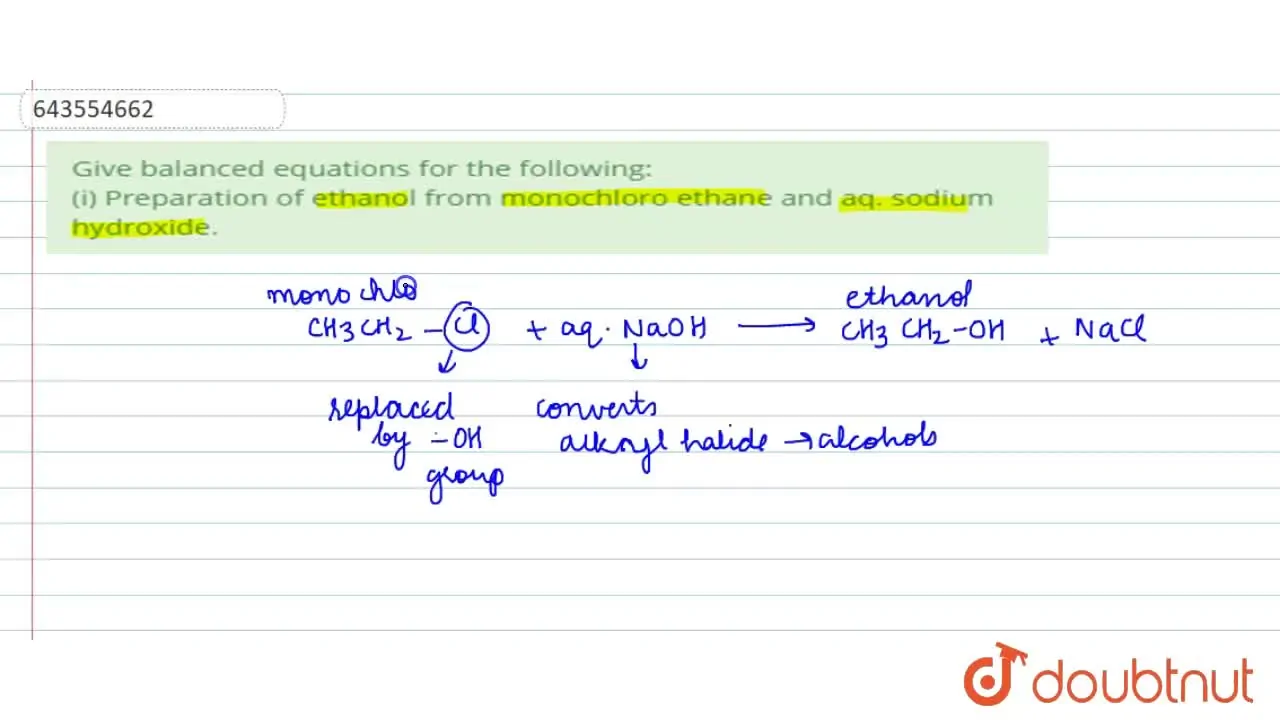 643554662
Give balanced equations for the following:
(i) Preparation of ethanol from monochloro ethane and aq. sodium
hydroxide.
monochlo ethanol
CH3CH2 - Cl + aq. NaOH → CH3CH2-OH + NaCl
replaced converts
by -OH alkyl halide → alcohols
group
doubtnut